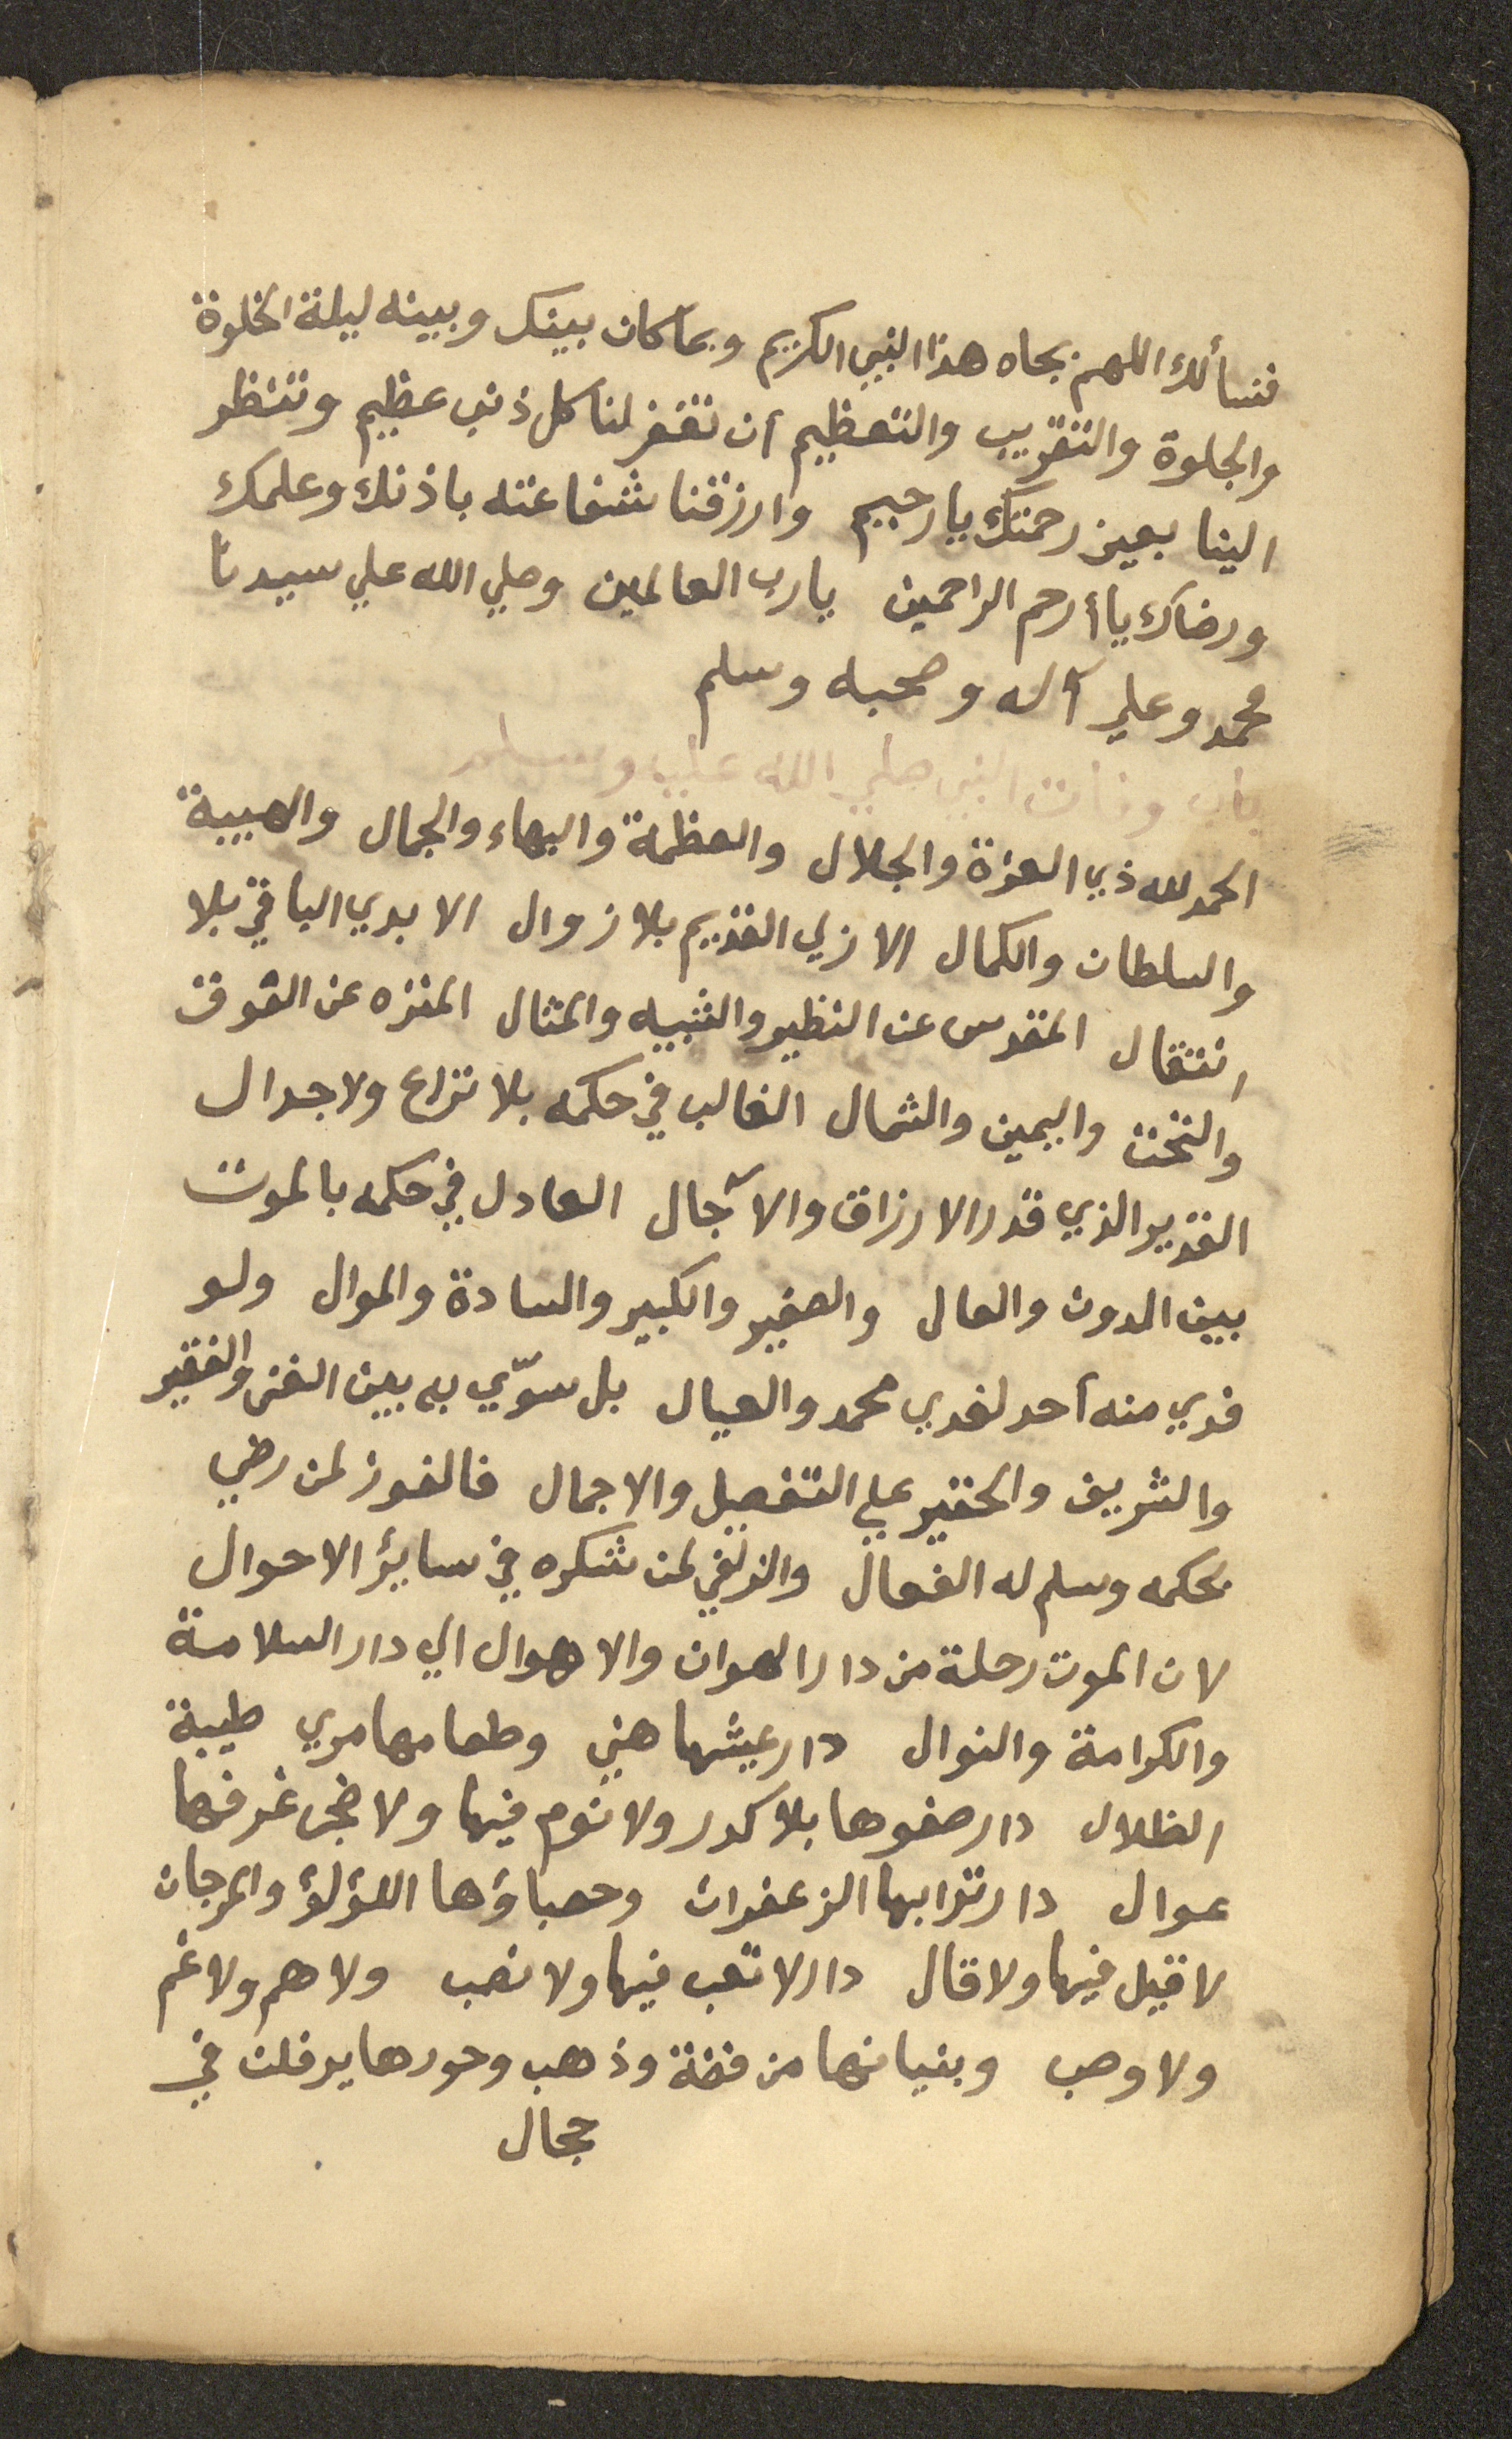 فنسألك اللهم بجاه هذا النبي الكريم وبما كان بينك وبينه ليلة الخلوة
والجلوة والتقريب والتعظيم أن تغفر لنا كل ذنب عظيم وتنظر
الينا بعين رحمتك يا رحيم وارزقنا شفاعته باذنك وعلمك
ورضاك يا أرحم الراحمين يا رب العالمين وصلي الله علي سيدنا
محمد وعلي آله وصحبه وسلم
باب وفات النبي صلي الله عليه وسلم
الحمد لله ذي العزة والجلال والعظمة والبهاء والجمال والهيبة
والسلطان والكمال الازلي القديم بلا زوال الابدي الباقي بلا
انتقال المقدس عن النظير والشبيه والمثال المنزه عن الفوق
والتحت واليمين والشمال الغالب في حكمه بلا نزاع ولا جدال
القدير الذي قدر الارزاق والآجال العادل في حكمه بالموت
بين الدون والعال والصغير والكبير والسادة والموال ولو
فدي منه أحد لفدي محمد والعيال بل سوّي به بين الغنى والفقير
والشريف والحقير علي التفصيل والاجمال فالفوز لمن رضي
بحكمه وسلم له الفعال والزلفي لمن شكره في سايئر الاحوال
لان الموت رحلة من دار الهوان والاهوال الي دار السلامة
والكرامة والنوال دار عيشها هني وطعامها مري طيبة
الظلال دار صفوها بلا كدر ولا نوم فيها ولا ضجر غرفها
عوال دار ترابها الزعفران وحصباؤها اللؤلؤ والمرجان
لا قيل فيها ولا قال دار لا تعب فيها ولا نصب ولا هم ولا غم
ولا وصب وبنيانها من فضة وذهب وحورها يرفلن في
حجال